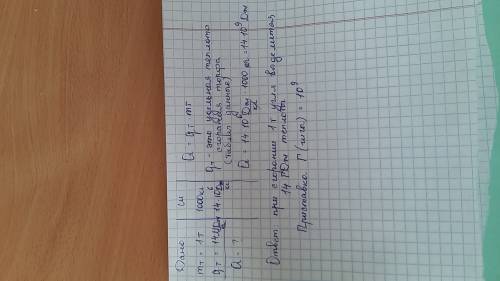 Дано
mт = 1т
qт = 14МДж/кг
Q = ?
СИ
1000кг
14·10⁶ Дж/кг
Q = qт · mт
qт - это удельная теплота
сгорания торфа
(таблич. данные)
Q = 14·10⁶ Дж/кг · 1000 кг = 14·10⁹ Дж
Ответ: при сгорании 1т угля выделится
14 ГДж теплоты
Приставка Г (гига) = 10⁹